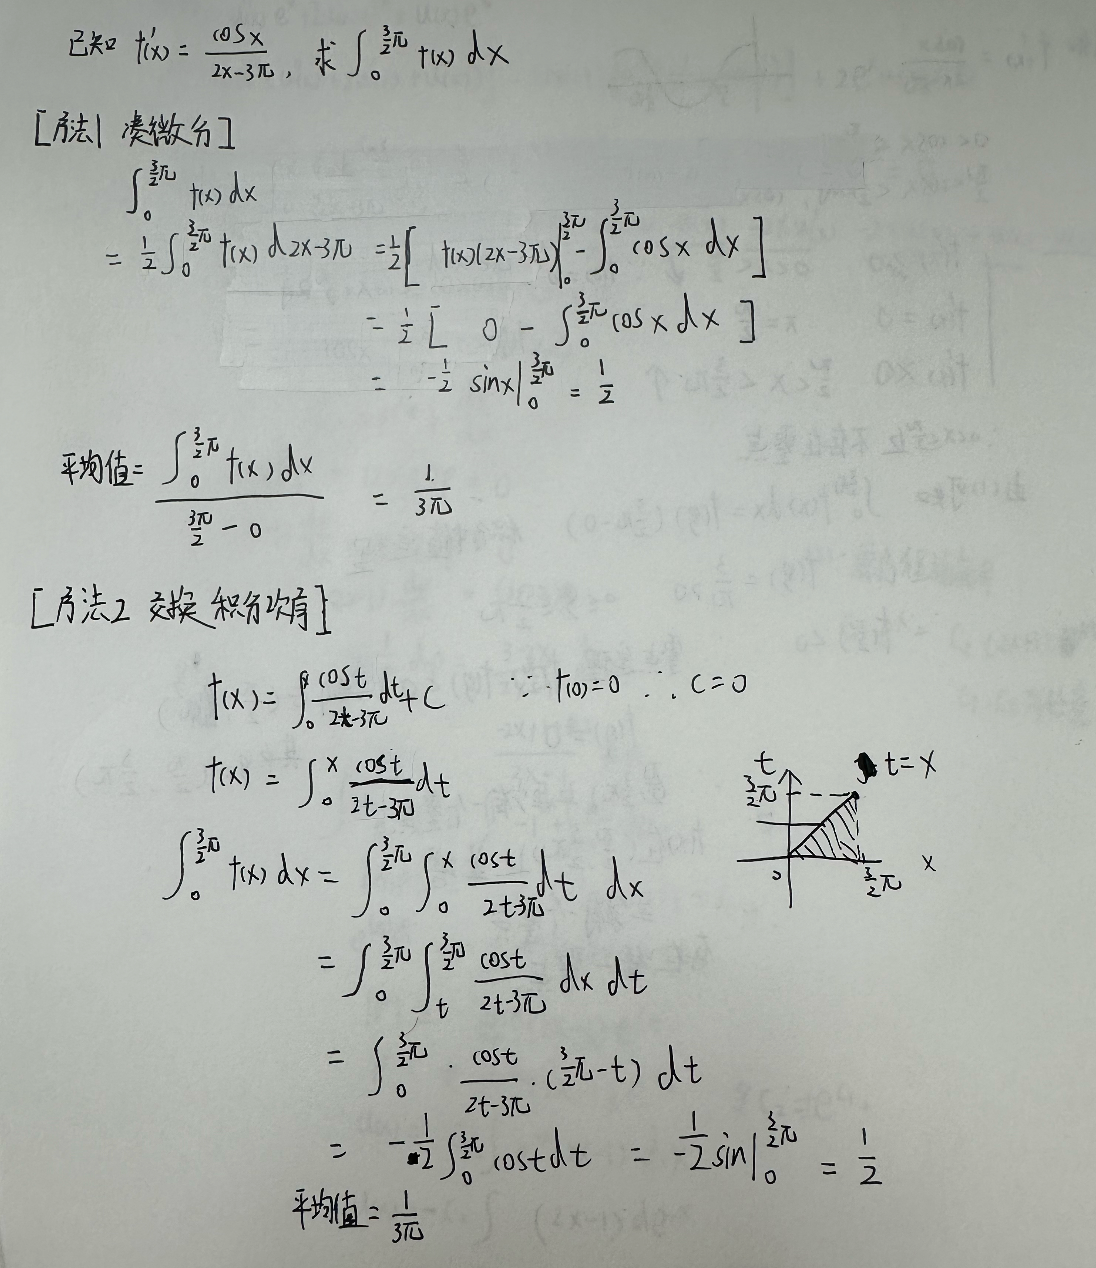 已知 f'(x) = cosx / (2x-3π), 求 ∫₀^(3/2π) f(x) dx
[方法1 凑微分]
∫₀^(3/2π) f(x) dx
= 1/2 ∫₀^(3/2π) f(x) d 2x-3π = 1/2 [ f(x)(2x-3π) |₀^(3/2π) - ∫₀^(3/2π) cosx dx ]
= 1/2 [ 0 - ∫₀^(3/2π) cosx dx ]
= -1/2 sinx |₀^(3/2π) = 1/2
平均值 = ∫₀^(3/2π) f(x) dx / (3π/2 - 0) = 1/3π
[方法2 交换积分次序]
f(x) = ∫₀^x cost / (2t-3π) dt + C ∵ f(0)=0 ∴ C=0
f(x) = ∫₀^x cost / (2t-3π) dt
t
t=x
3/2π
0
3/2π
x
∫₀^(3/2π) f(x) dx = ∫₀^(3/2π) ∫₀^x cost / (2t-3π) dt dx
= ∫₀^(3/2π) ∫_t^(3/2π) cost / (2t-3π) dx dt
= ∫₀^(3/2π) · cost / (2t-3π) · (3/2π-t) dt
= -1/2 ∫₀^(3/2π) cost dt = 1/-2 sin |₀^(3/2π) = 1/2
平均值 = 1/3π